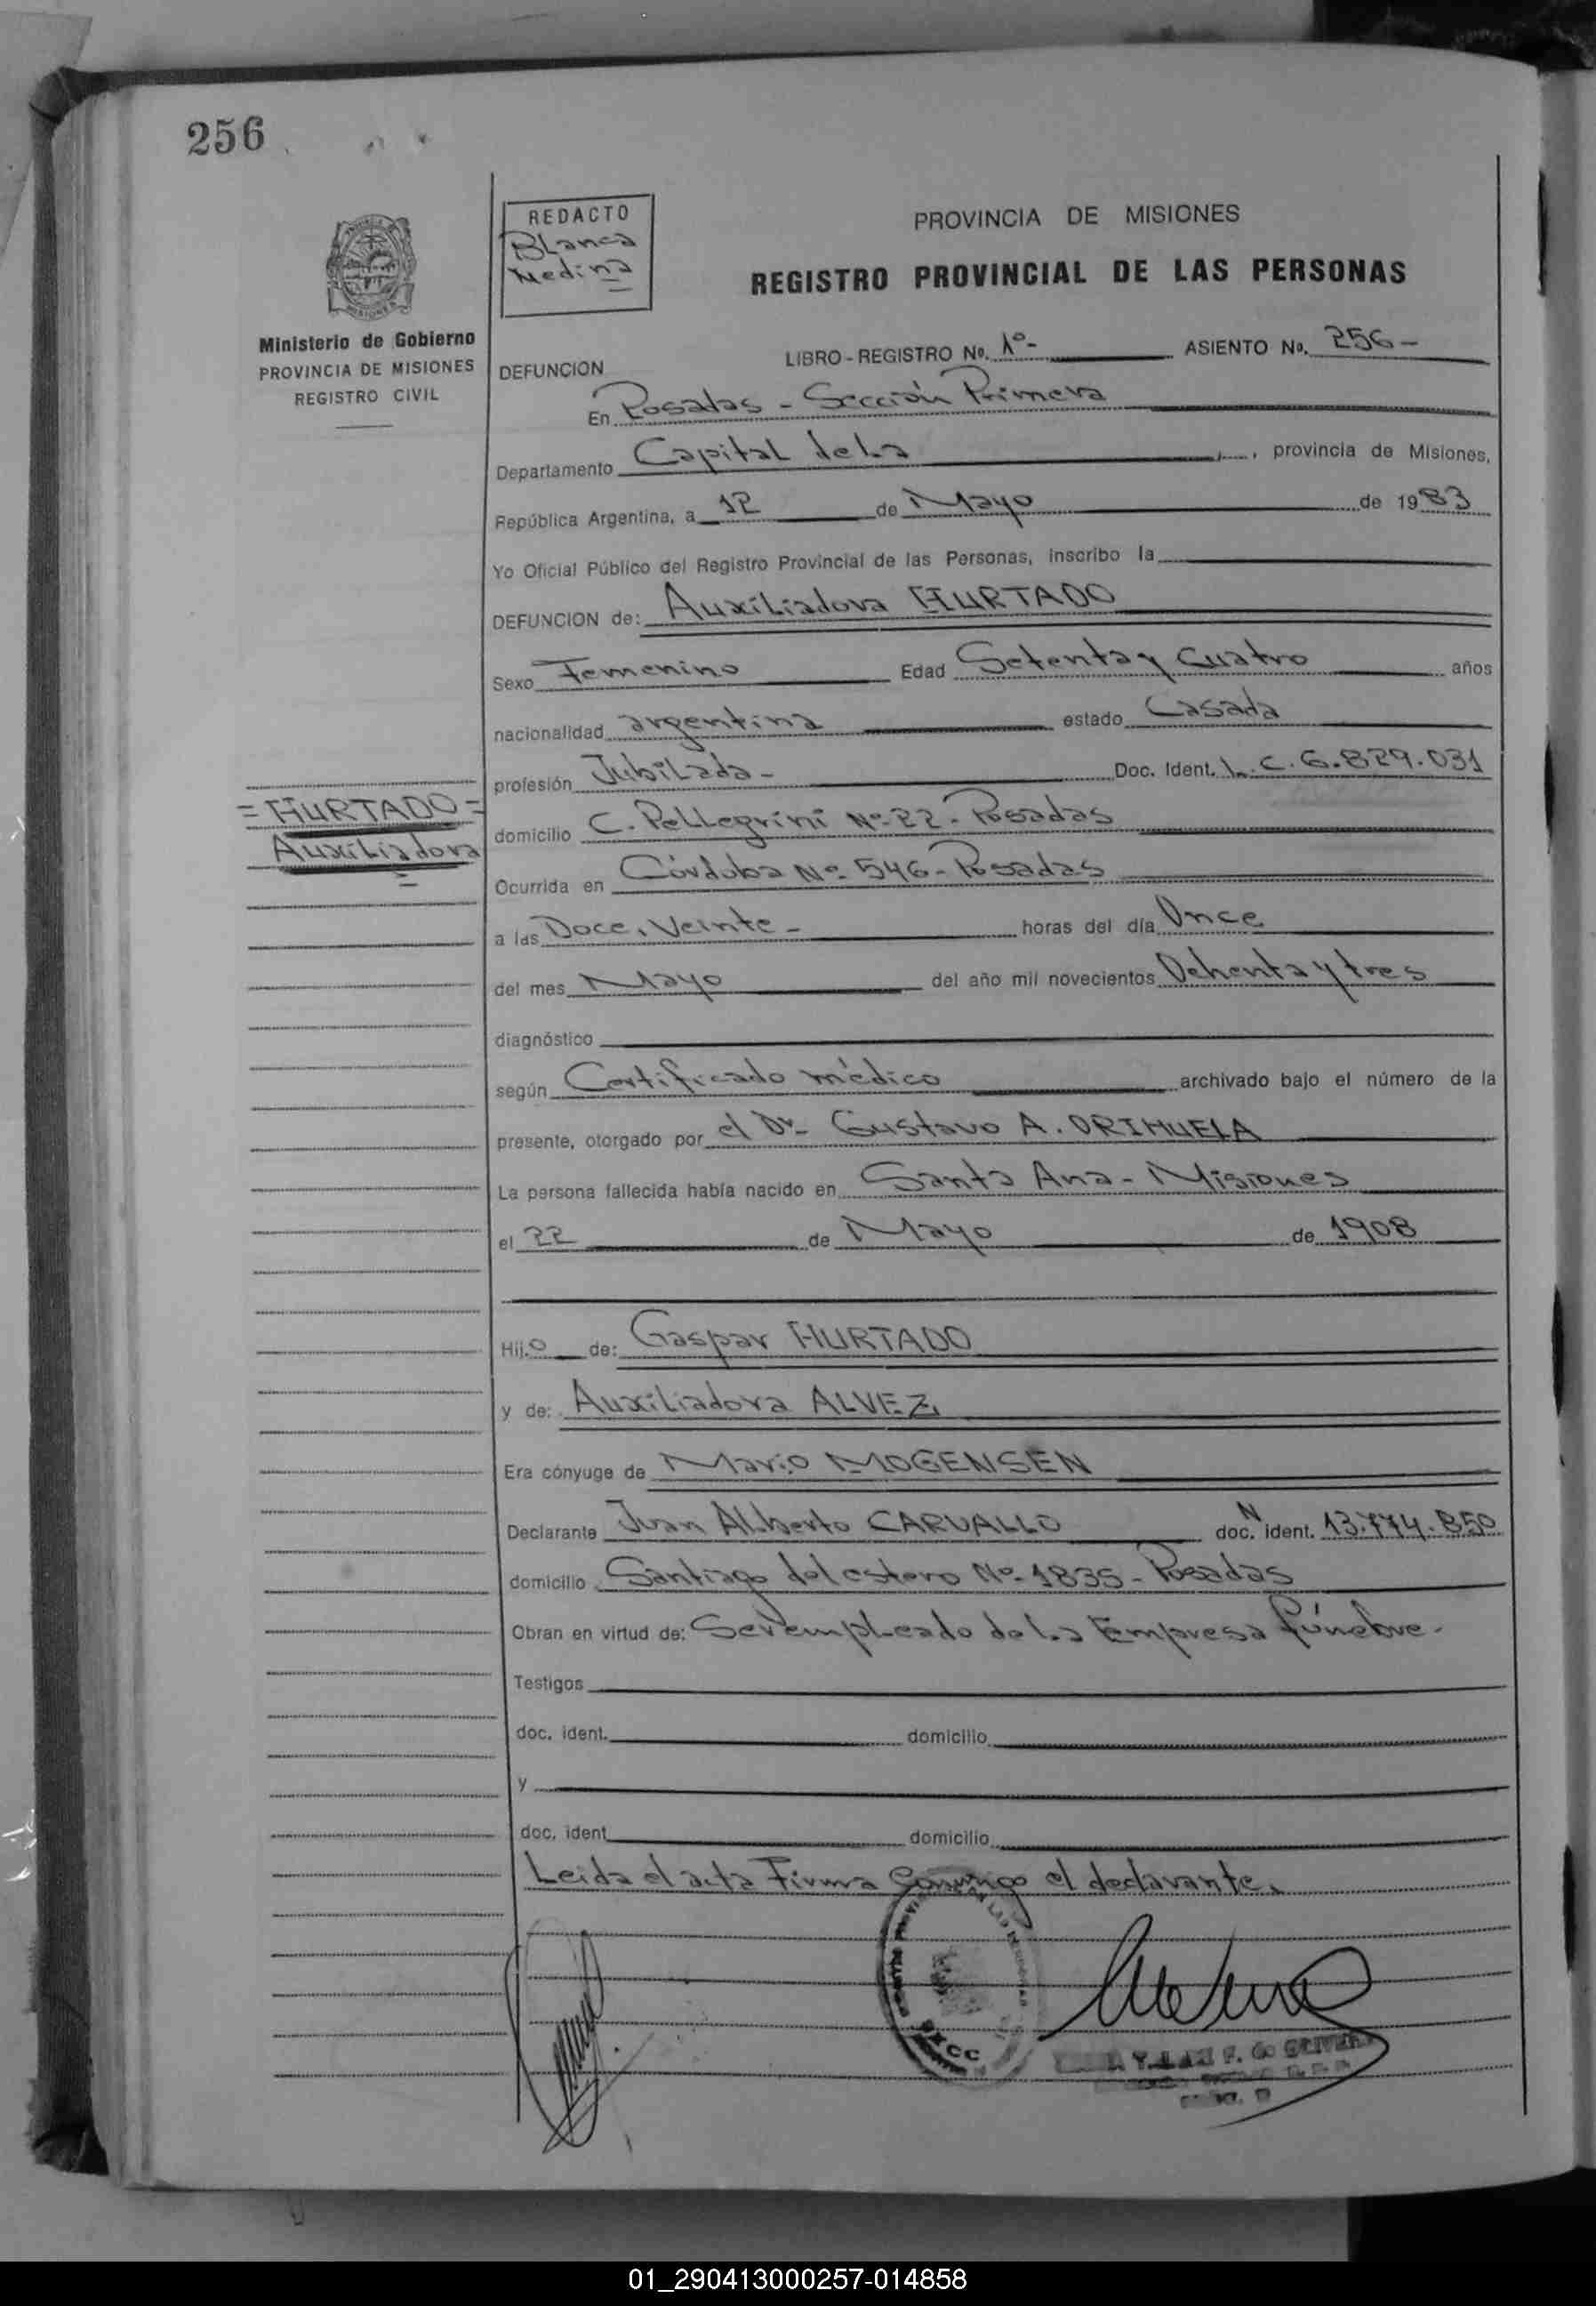 256
REDACTO
Blanca
Medina
PROVINCIA DE MISIONES
REGISTRO PROVINCIAL DE LAS PERSONAS
Ministerio de Gobierno
PROVINCIA DE MISIONES
REGISTRO CIVIL
DEFUNCION LIBRO-REGISTRO No. 1º- ASIENTO No. 256-
En Posadas - Sección Primera
Departamento Capital de la , provincia de Misiones,
República Argentina, a 12 de Mayo de 1983
Yo Oficial Público del Registro Provincial de las Personas, inscribo la
DEFUNCION de: Auxiliadora HURTADO
Sexo Femenino Edad Setenta y Cuatro años
nacionalidad argentina estado Casada
profesión Jubilada- Doc. Ident. L.C.6.829.031
=HURTADO=
Auxiliadora
domicilio C. Pellegrini Nº 22- Posadas
Ocurrida en Córdoba Nº 546- Posadas
a las Doce, Veinte- horas del día Once
del mes Mayo del año mil novecientos Ochenta y tres
diagnóstico
según Certificado médico archivado bajo el número de la
presente, otorgado por el Dr- Gustavo A. ORIHUELA
La persona fallecida había nacido en Santa Ana- Misiones
el 22 de Mayo de 1908
Hij.o de: Gaspar HURTADO
y de: Auxiliadora ALVEZ
Era cónyuge de Mario MOGENSEN
Declarante Juan Alberto CARVALLO doc. N ident. 13.774.850
domicilio Santiago del estero Nº 1835- Posadas
Obran en virtud de: Ser empleado de la Empresa fúnebre-
Testigos
doc. ident. domicilio
y
doc. ident domicilio
Leida el acta Firma Conmigo el declarante.
01_290413000257-014858